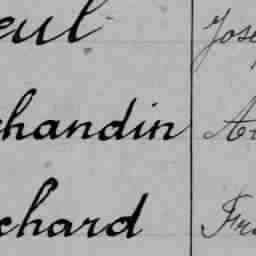 eul Jose
chandin Au
chard Fra